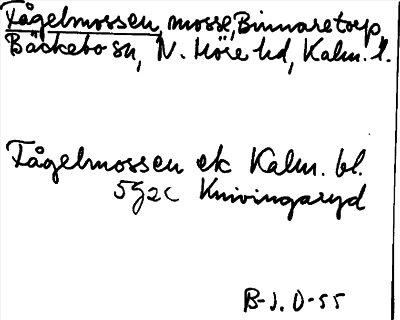 Fågelmossen, mosse, Binnaretorp,
Bäckebo sn, N. Möre hd, Kalm. l.
Fågelmossen ek Kalm. bl.
5G2c Knivingaryd
B-J. O-55